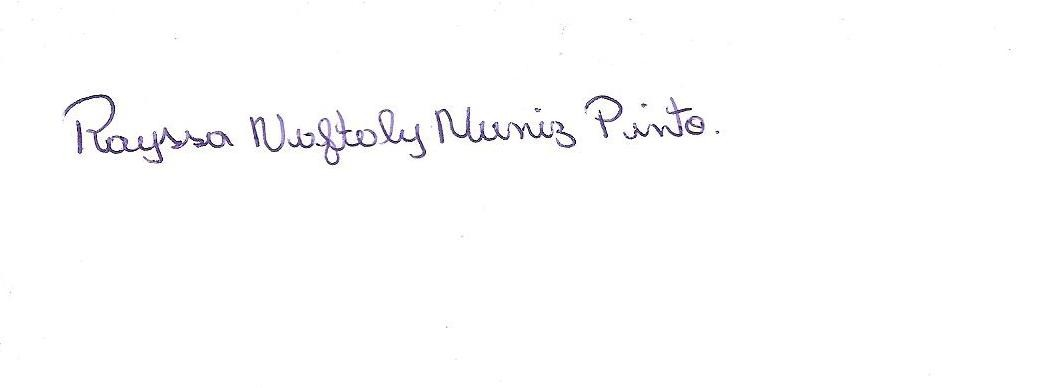 Rayssa Naftaly Muniz Pinto.